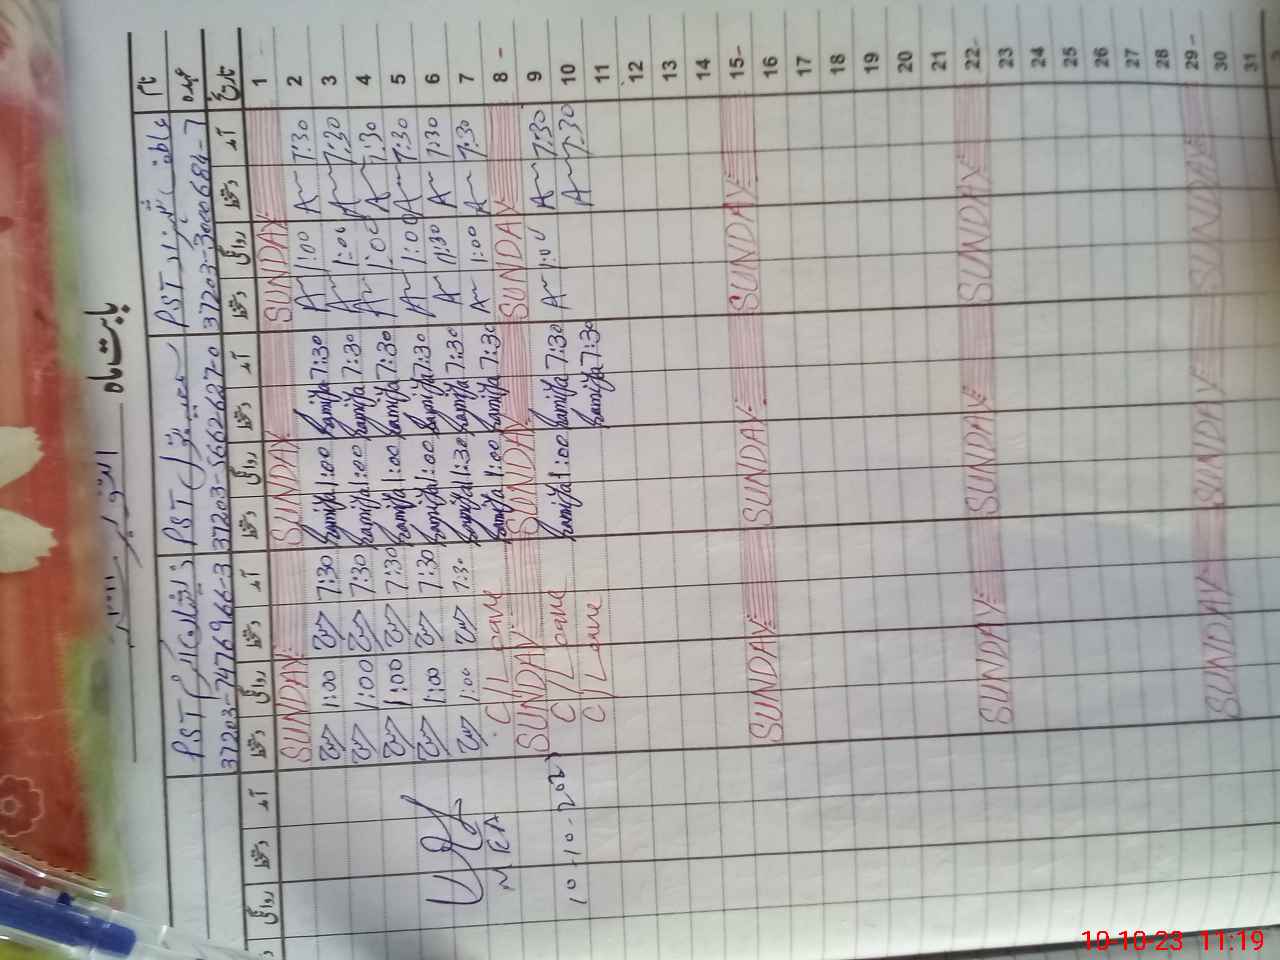 بابت ماہ اکتوبر
نام
عہدہ PST PST PST
37203-3000684-7 37203-5662627-0 37203-7476966-3
تاریخ آمد دستخط روانگی دستخط آمد دستخط روانگی دستخط آمد دستخط روانگی دستخط آمد دستخط روانگی
1 SUNDAY SUNDAY SUNDAY
2 7:30 1:00 7:30 hamifa 1:00 hamifa 7:30 1:00
3 7:30 1:00 7:30 hamifa 1:00 hamifa 7:30 1:00
4 7:30 1:00 7:30 hamifa 1:00 hamifa 7:30 1:00
5 7:30 1:00 7:30 hamifa 1:00 hamifa 7:30 1:00
6 7:30 7:30 hamifa 1:30 hamifa 7:30 1:00
7 7:30 1:00 7:30 hamifa 1:00 hamifa C/Leave
8 - SUNDAY SUNDAY SUNDAY
9 7:30 1:00 7:30 hamifa 1:00 hamifa C/Leave
10 7:30 7:30 hamifa C/Leave
11
12
13
14
15- SUNDAY SUNDAY SUNDAY
16
17
18
19
20
21
22- SUNDAY SUNDAY SUNDAY
23
24
25
26
27
28
29- SUNDAY SUNDAY SUNDAY
30
31
MEA
10-10-2023
10-10-23 11:19